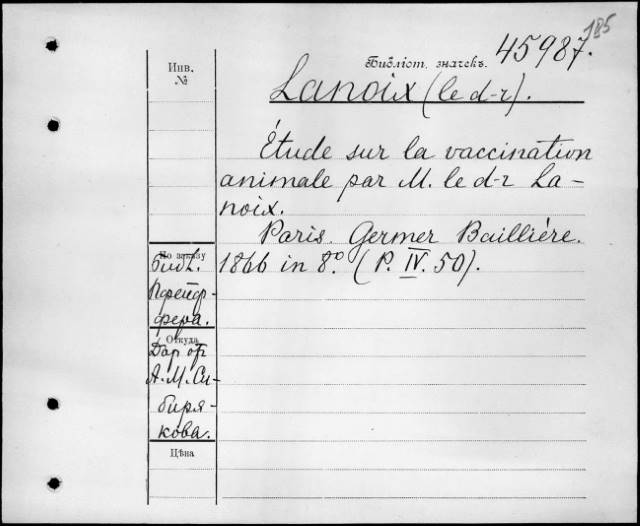 185
Библіот. значекъ. 45987.
Инв.
№
Lanoix (le d-r).
Étude sur la vaccination
animale par M. le d-r La-
noix.
Paris. Germer Baillière.
1866 in 8º. (P. IV. 50).
По заказу
Библ.
Пфейф-
фера.
Откуда
Дар от
А. М. Си-
биря-
кова.
Цѣна